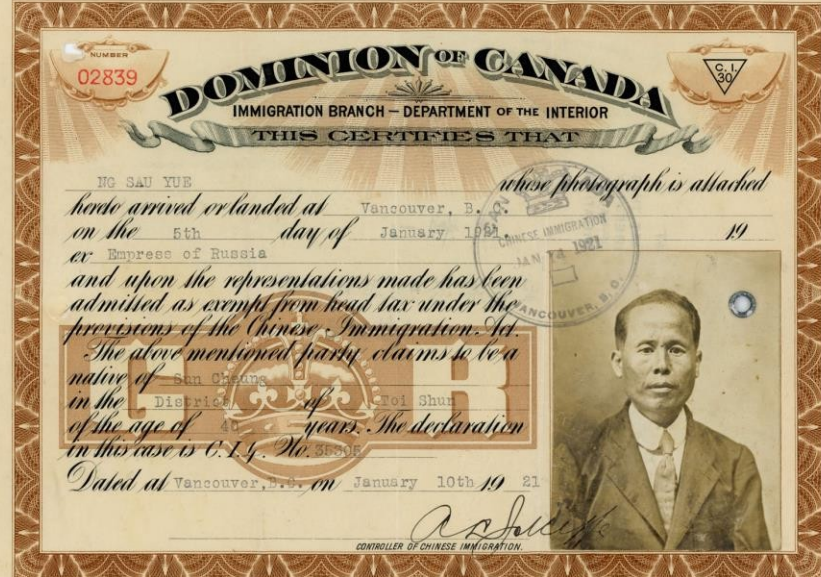 NUMBER
02839
C. I.
30
DOMINION OF CANADA
IMMIGRATION BRANCH – DEPARTMENT OF THE INTERIOR
THIS CERTIFIES THAT
NG SAU YUE whose photograph is attached
hereto arrived or landed at Vancouver, B. C.
on the 5th day of January 1921. 19
ex Empress of Russia
and upon the representations made has been
admitted as exempt from head tax under the
provisions of the Chinese Immigration Act.
The above mentioned party claims to be a
native of Sun Cheung
in the District of Toi Shun
of the age of years. The declaration
in this case is C.I.4. No. 35305
Dated at Vancouver, B.C. on January 10th 19 21
CONTROLLER OF CHINESE IMMIGRATION.
CHINESE IMMIGRATION
JAN 1921
VANCOUVER, B. C.
G R